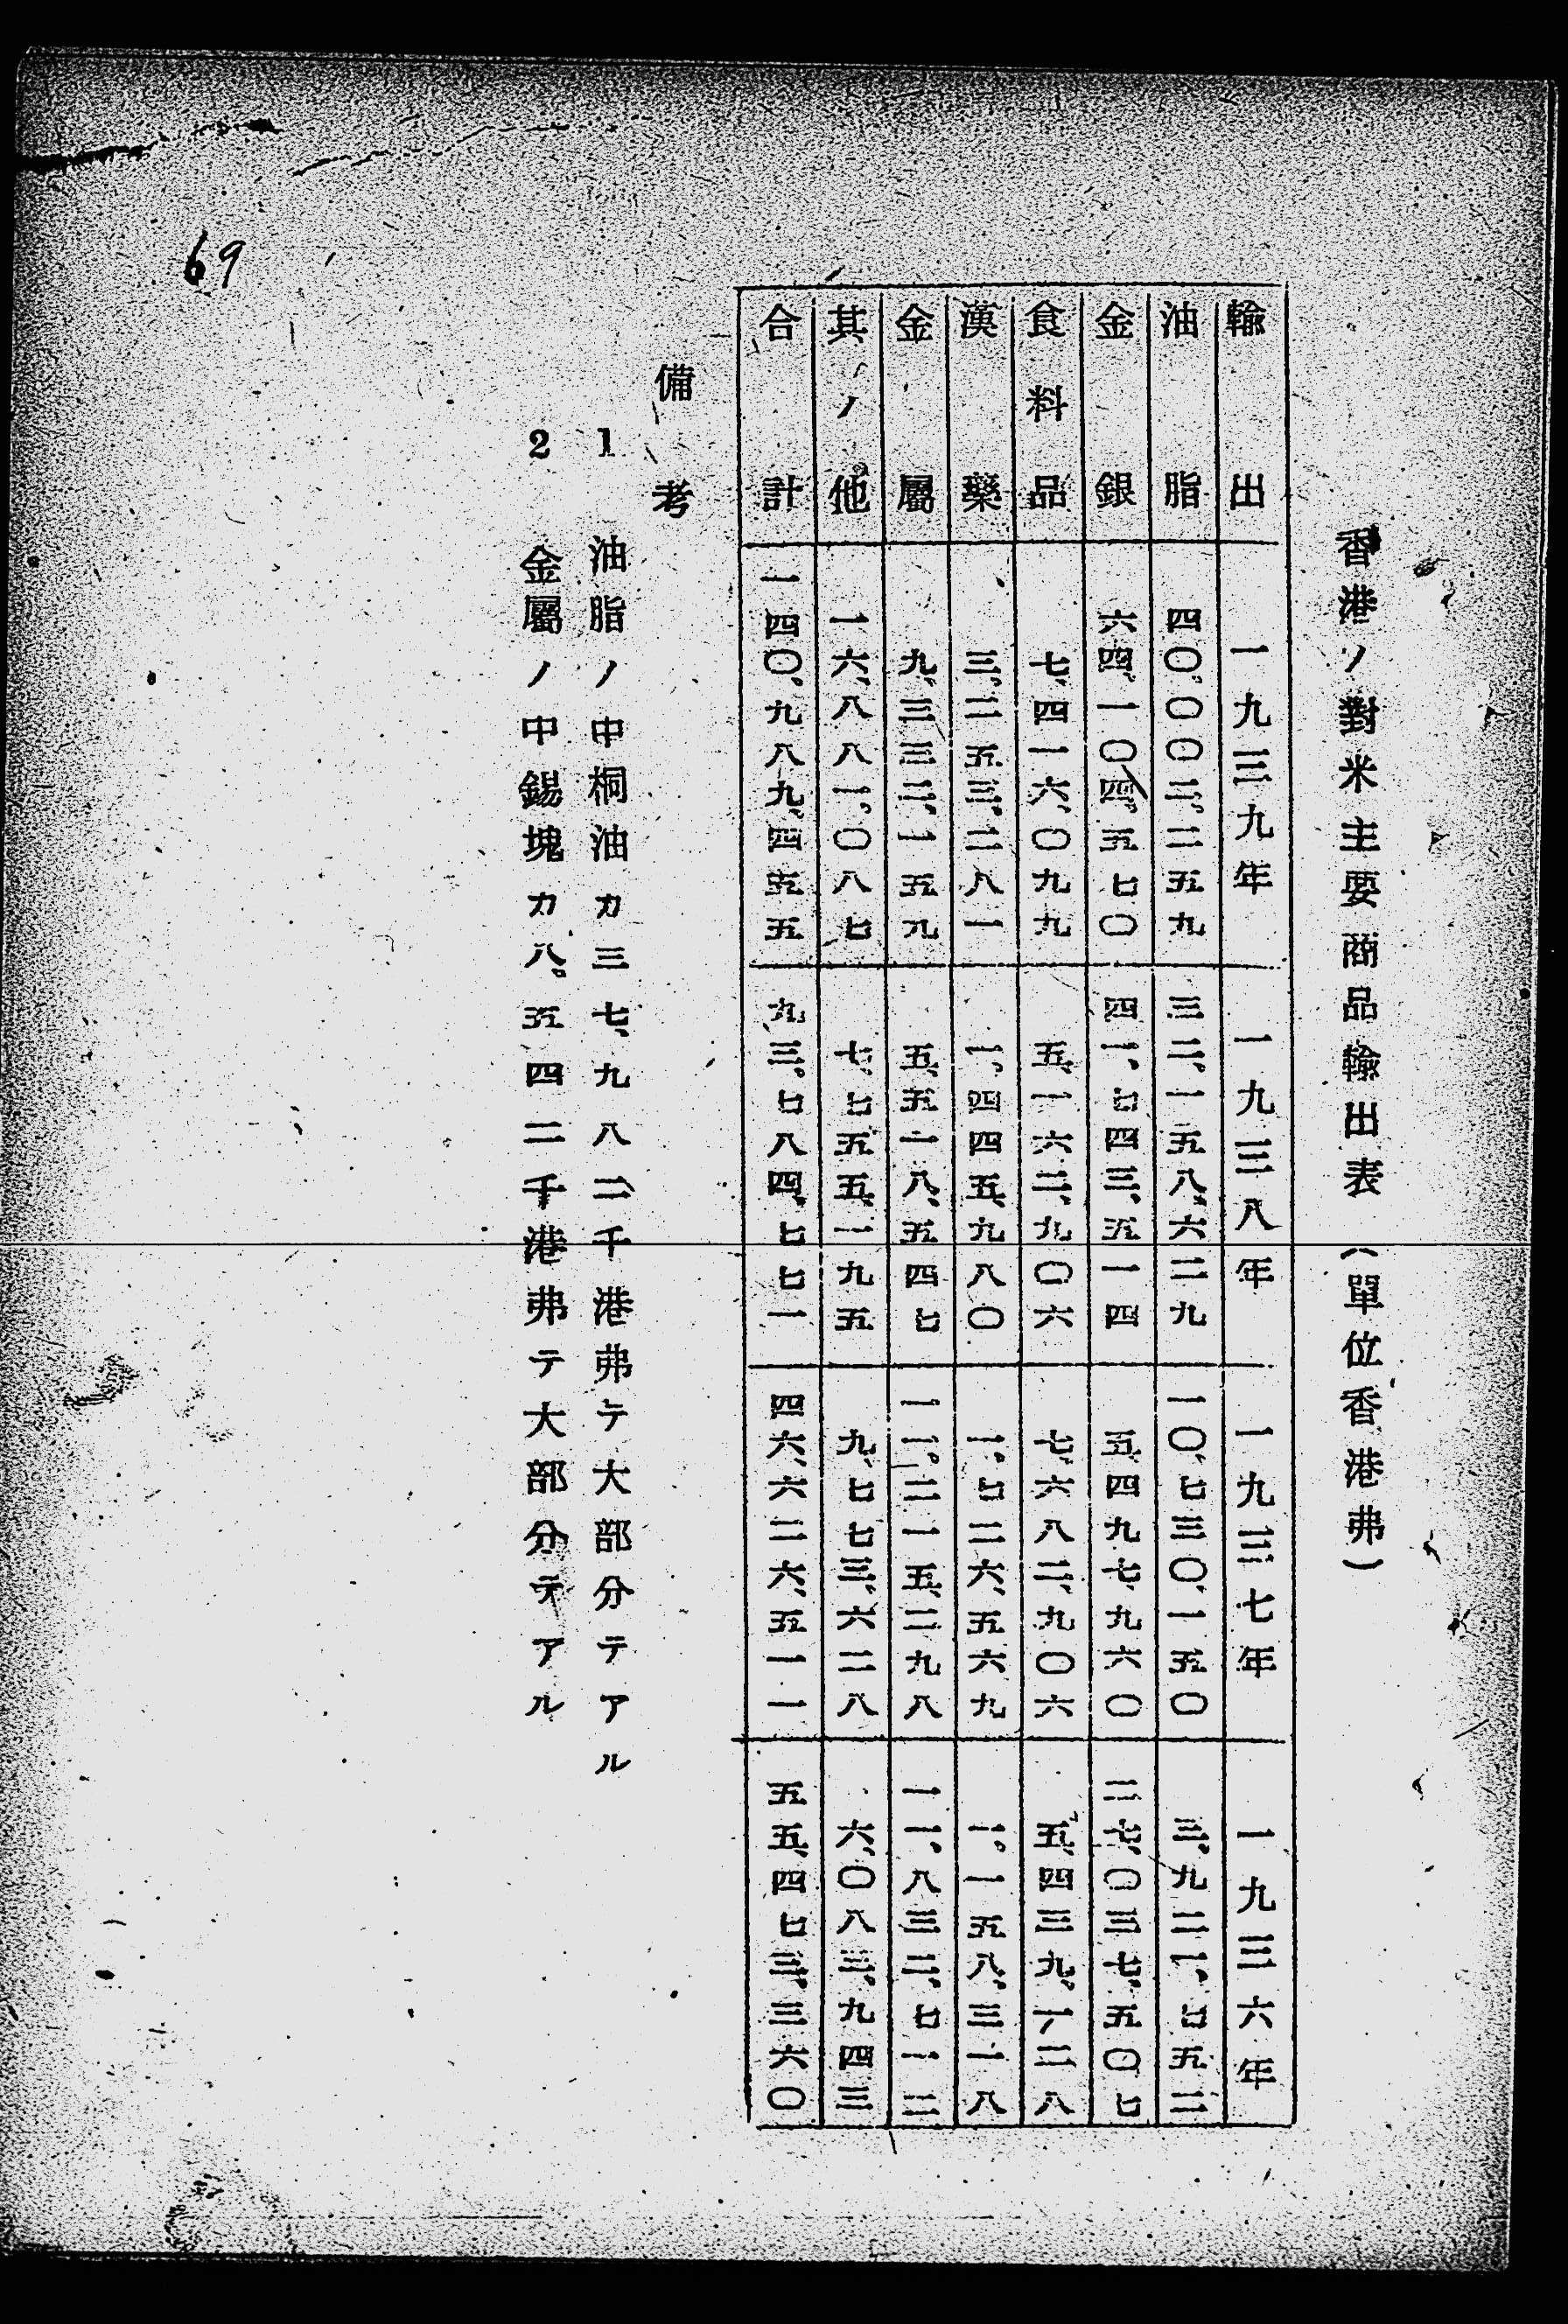 香港ノ對米主要商品輸出表(單位香港弗)
輸出 一九三九年 一九三八年 一九三七年 一九三六年
油脂 四〇、〇〇二、二五九 三二、一五八、六二九 一〇、七三〇、一五〇 三、九二一、七五二
金銀 六四、一〇四、五七〇 四一、七四三、五一四 五、四九七、九六〇 二七、〇三七、五〇七
食料品 七、四一六、〇九九 五、一六二、九〇六 七、六八二、九〇六 五、四三九、一二八
漢藥 三、二五三、二八一 一、四四五、九八〇 一、七二六、五六九 一、一五八、三一八
金屬 九、三三二、一五九 五、五一八、五四七 一一、二一五、二九八 一一、八三二、七一二
其ノ他 一六、八八一、〇八七 七、七五五、一九五 九、七七三、六二八 六、〇八三、九四三
合計 一四〇、九八九、四五五 九三、七八四、七七一 四六、六二六、五一一 五五、四七三、三六〇
備考
1 油脂ノ中桐油カ三七、九八二千港弗テ大部分テアル
2 金屬ノ中錫塊カ八、五四二千港弗テ大部分テアル
69